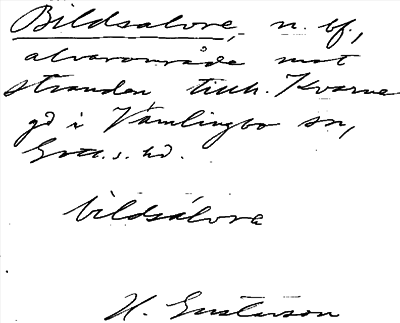 Bildsalvore, n. bf.,
alvarområde mot
stranden tillh. Kvarne
gd i Vamlingbo sn,
Gotl. s. hd.
bildsálvora
H. Gustavson